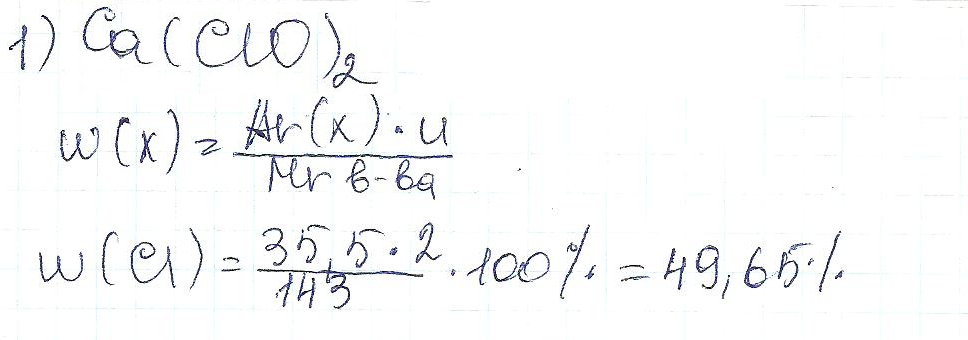 1) Ca(ClO)₂
w(x) = Ar(x)·n / Mr в-ва
w(Cl) = 35,5·2 / 143 · 100% = 49,65%